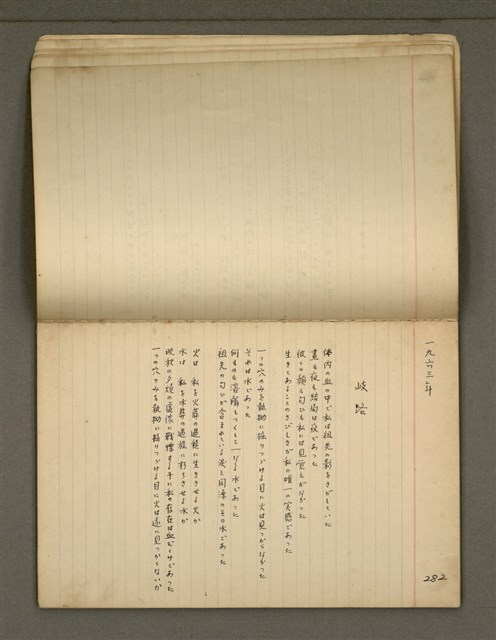 一九六三年
岐路
体内の血の中で私は祖先の影をさがしていた
晝も夜も結局は夜であった
彼らの顔も匂ひも私には見覚えがなかった
生きてあることのさびしさが私の唯一の実感であった
一つの穴のみを執拗に掘りつづける目に火は見つからなかった
それは水であった
何ものも溶解しつくしてしまう水であった
祖先の匂ひが含まれている炎と同源のその水であった
火は 私を火葬の過程に生きさせる火か
水は 私を水葬の過程に朽ちさせる水か
晩秋の夕焼の虚像に戦慄する手に私の存在は血だらけであった
一つの穴のみを執拗に掘りつづける目に火は遂に見つからないか
282